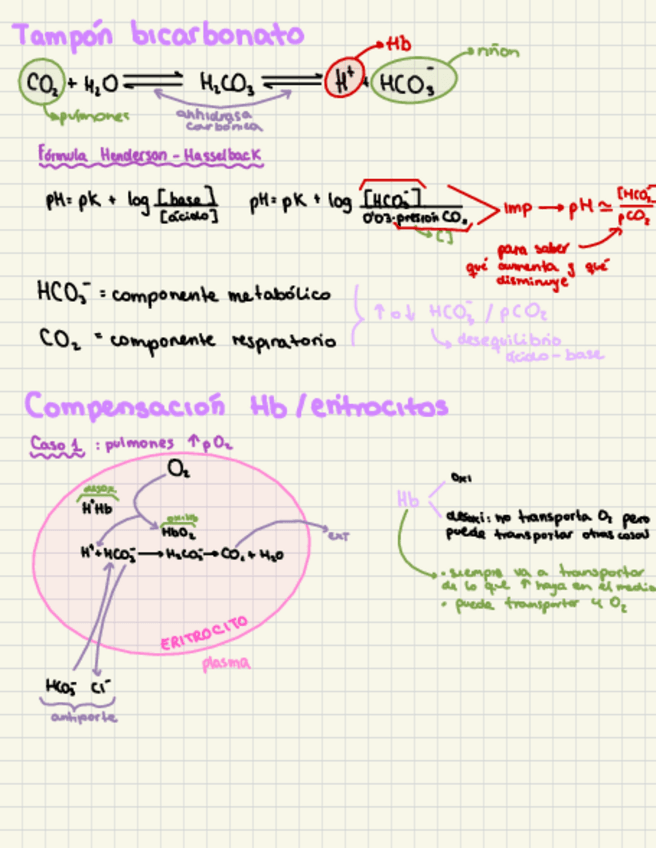 Tampón bicarbonato
Hb
riñon
CO₂ + H₂O ⇌ H₂CO₃ ⇌ H⁺ + HCO₃⁻
pulmones
anhidrasa
carbónica
Fórmula Henderson - Hasselback
pH = pK + log [base]/[ácido] pH = pK + log [HCO₃⁻]/0'03·presión CO₂ imp → pH ≃ [HCO₃⁻]/pCO₂
[]
para saber
qué aumenta y qué
disminuye
HCO₃⁻ = componente metabólico
↑ o ↓ HCO₃⁻ / pCO₂
CO₂ = componente respiratorio
desequilibrio
ácido-base
Compensación Hb/eritrocitos
Caso 1 : pulmones ↑pO₂
O₂
desoxi
H⁺Hb
oxiHb
HbO₂
H⁺ + HCO₃⁻ → H₂CO₃ → CO₂ + H₂O
ext
ERITROCITO
plasma
HCO₃⁻ Cl⁻
antiporte
Hb
oxi
desoxi: no transporta O₂ pero
puede transportar otras cosas
· siempre va a transportar
de lo que ↑ haya en el medio
· puede transportar 4 O₂